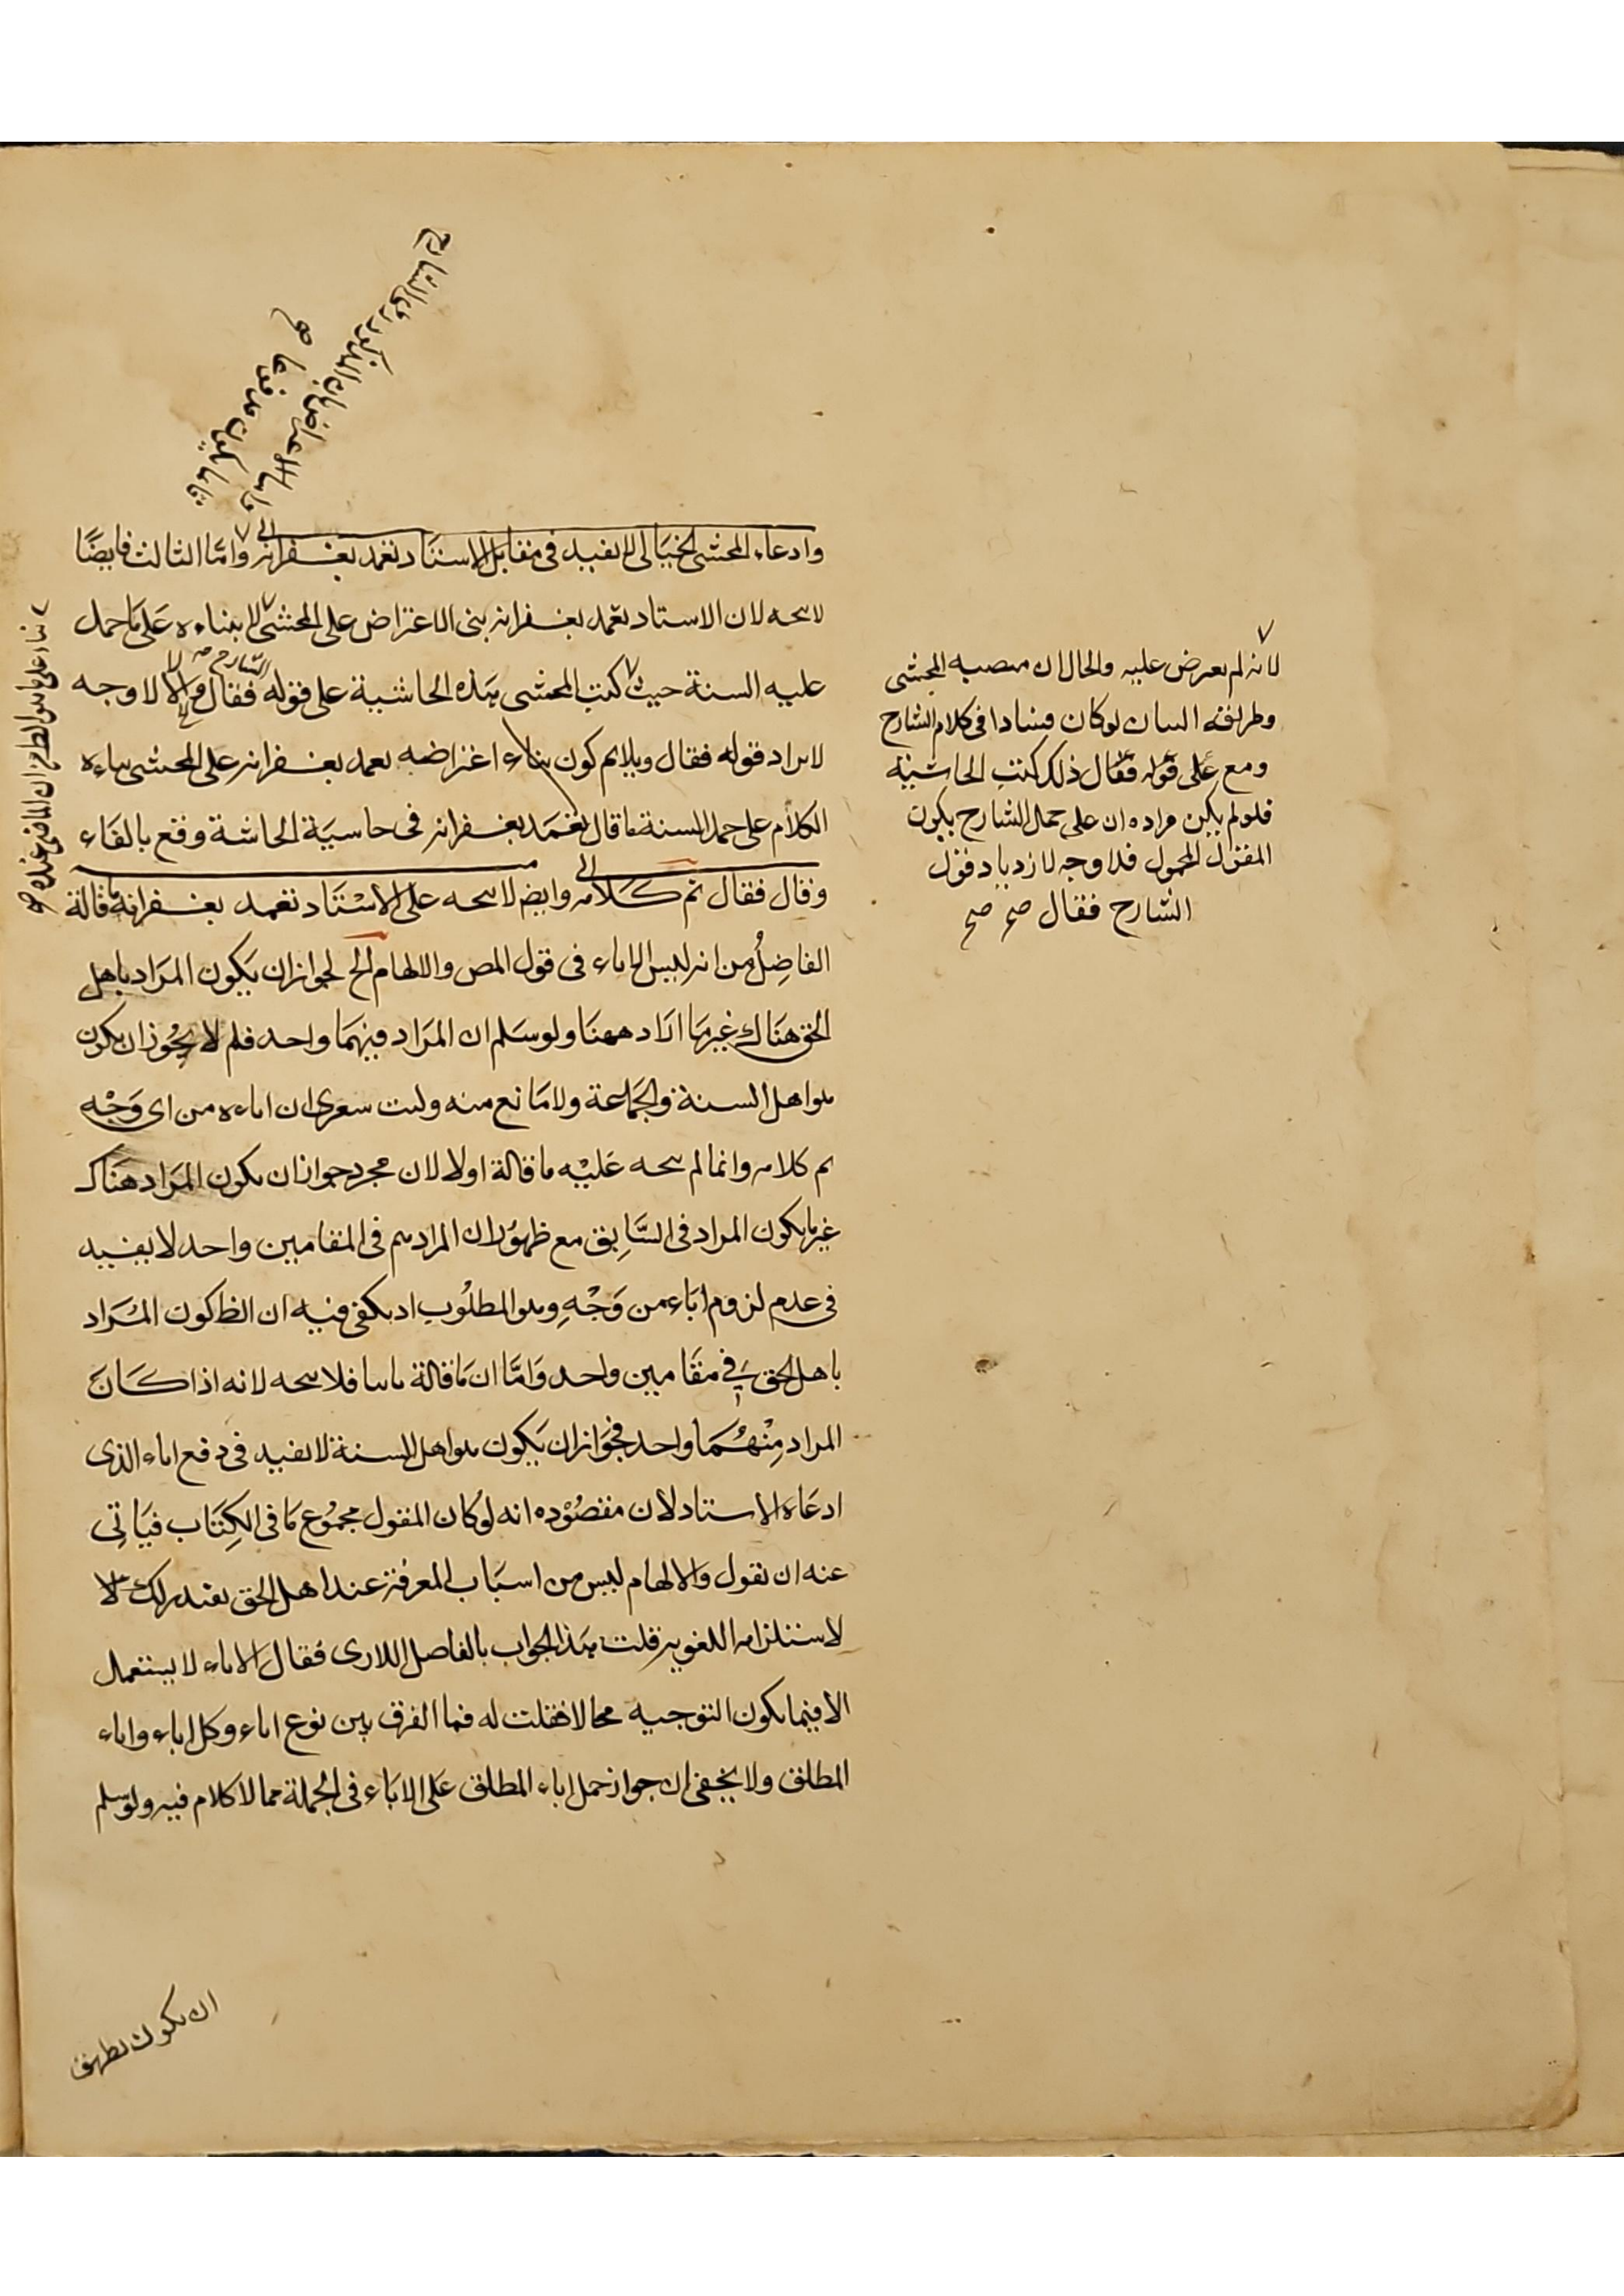 وادعاء المحشى الخيالى لا يفيد فى مقابل الاستاد تغمد بغفرانه الى واما الثالث فايضا
لا يتجه لان الاستاد تغمد بغفرانه بنى الاعتراض على المحشى لا بناءه على ما حمل
عليه السنة حيث كتب المحشى هذه الحاشية على قوله فقال والا لا وجه
لايراد قوله فقال ويلايم كون بناء اعتراضه تغمد بغفرانه على المحشى بناءه
الكلام على حمد السنة ما قال تغمد بغفرانه فى حاشية الحاشية وقع بالفاء
وقال فقال تم كلامه وايضا لا يتجه على الاستاد تغمد بغفرانه ما قالة
الفاضل من انه ليس الاباء فى قول المص والالهام الخ لجواز ان يكون المراد باهل
الحق هناك غير ما اراد ههنا ولو سلم ان المراد فيهما واحد فلم لا يجوز ان يكون
هو اهل السنة والجماعة ولا مانع منه وليت شعرى ان اباءه من اى وجه
تم كلامه وانما لم يتجه عليه ما قالة اولا لان مجرد جواز ان يكون المراد هناك
غير ما يكون المراد فى السابق مع ظهور ان المراد فى المقامين واحد لا يفيد
فى عدم لزوم اباء من وجه وهو المطلوب اذ يكفى فيه ان الظ كون المراد
باهل الحق فى مقامين واحد واما ان ما قالة ثانيا فلا يتجه لانه اذا كان
المراد منهما واحد فجواز ان يكون هو اهل السنة لا يفيد فى دفع اباء الذى
ادعاه الاستاد لان مقصوده انه لو كان المقول مجموع ما فى الكتاب فياتى
عنه ان يقول والالهام ليس من اسباب المعرفة عند اهل الحق
لاستلزامه اللغوية قلت هذا الجواب بالفاضل اللارى فقال الاباء لا يستعمل
الا فيما يكون التوجيه محالا فقلت له فما الفرق بين نوع اباء وكل اباء واباء
المطلق ولا يخفى ان جواز حمل اباء المطلق على الاباء فى الجملة مما لا كلام فيه ولو سلم
ان يكون بطريق
لانه لم يعرض عليه والحال ان منصب المحشى
وطريقة البيان لو كان فسادا فى كلام الشارح
ومع على قوله فقال ذلك كتب الحاشية
فلو لم يكن مراده ان على حمل الشارح يكون
المقول المحمول فلا وجه لازدياد قول
الشارح فقال صح صح